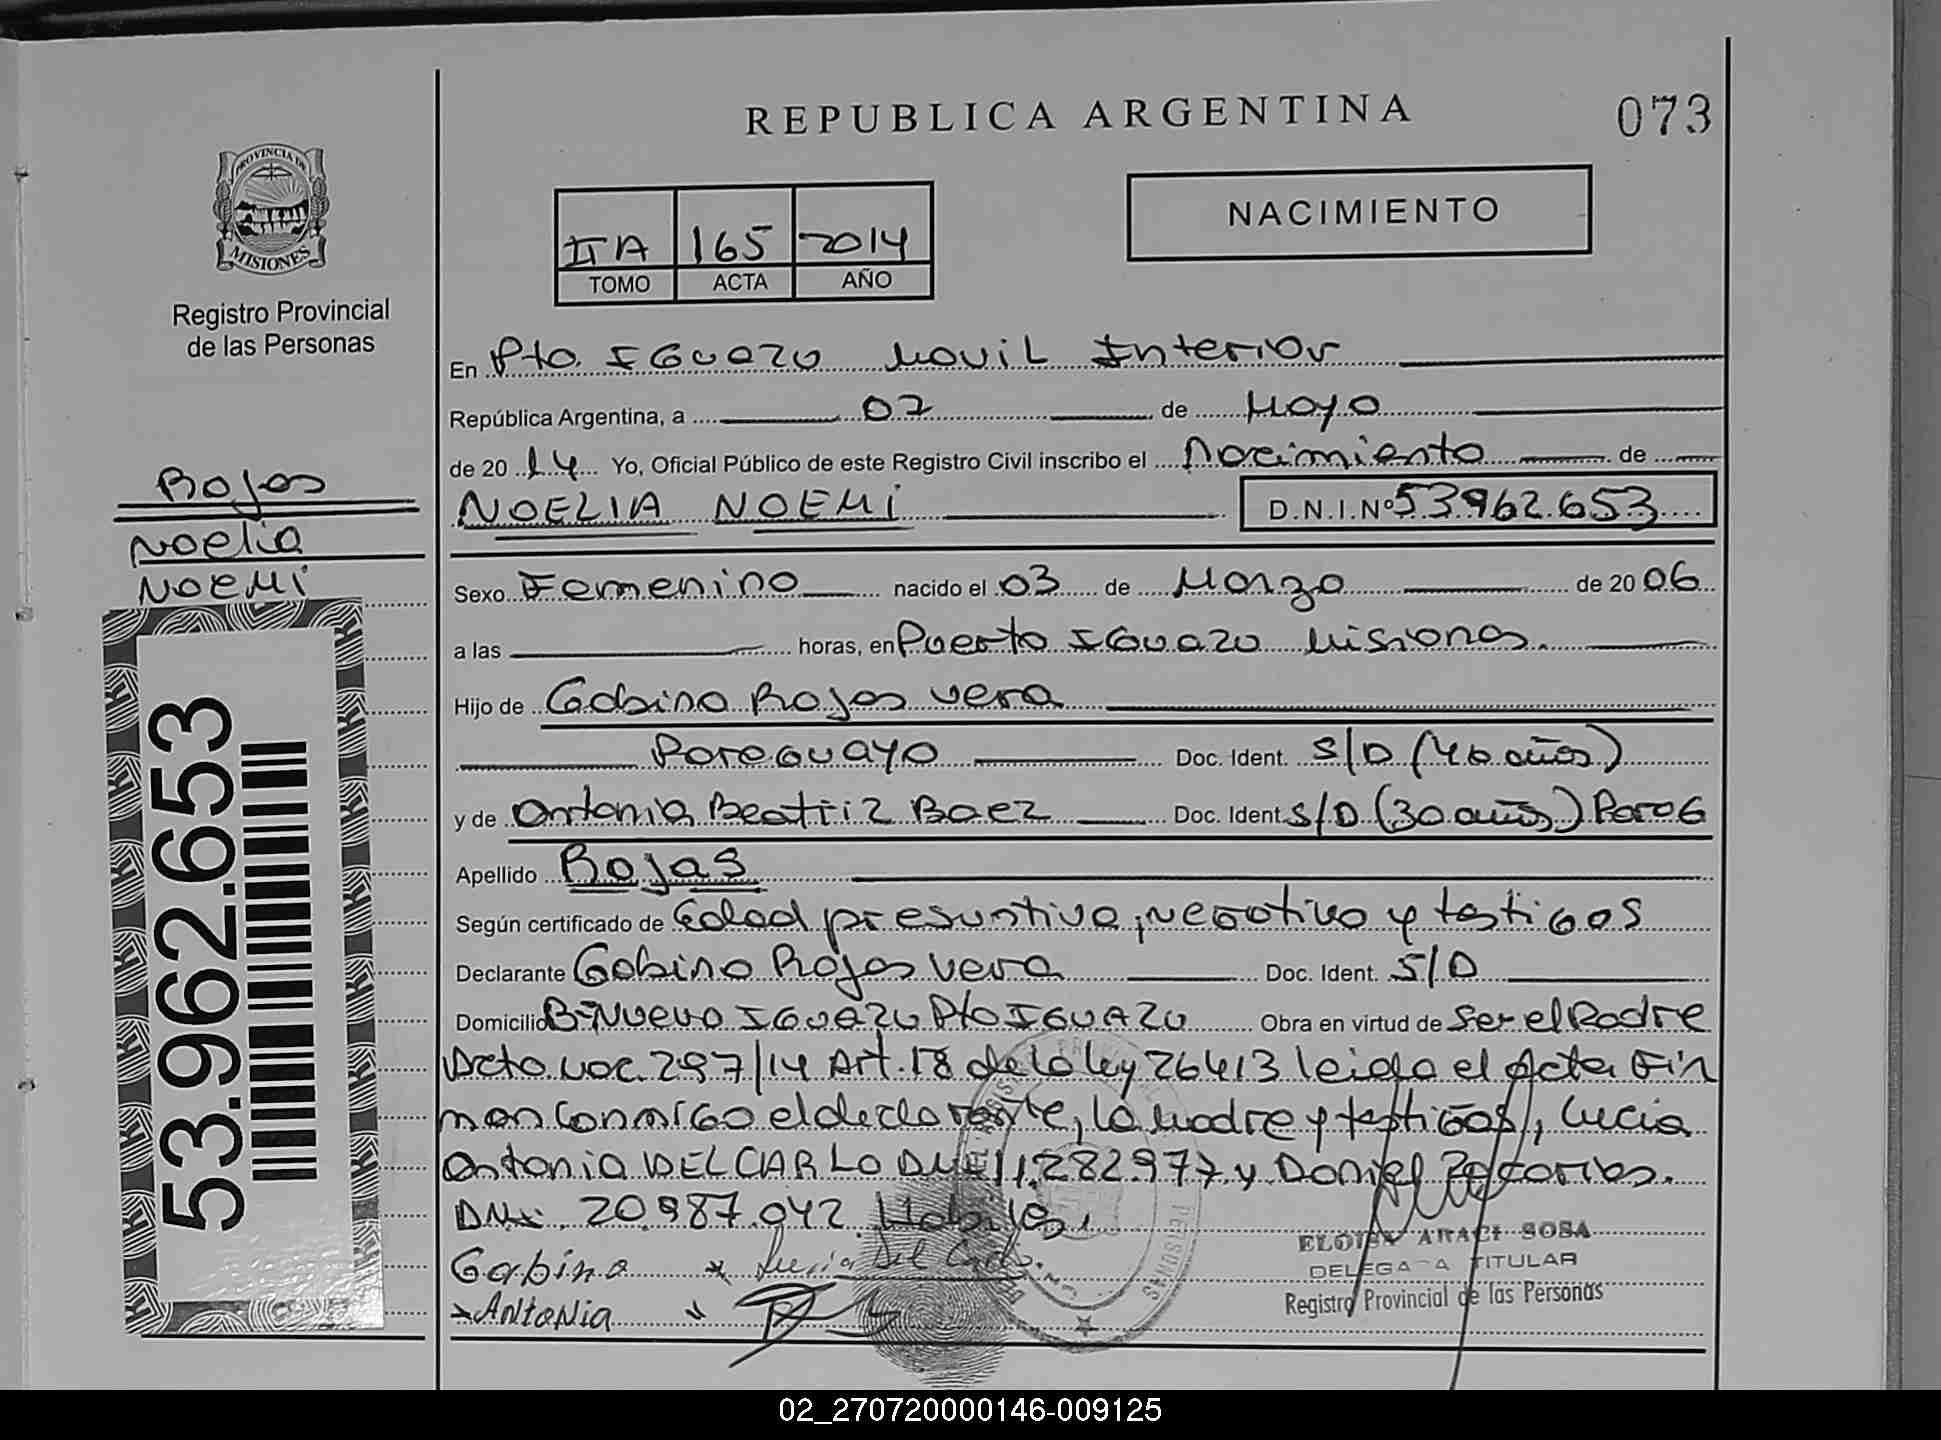 REPUBLICA ARGENTINA
073
PROVINCIA DE
MISIONES
Registro Provincial
de las Personas
NACIMIENTO
II A 165 2014
TOMO ACTA AÑO
En Pto. IGUAZU MOVIL Interior
República Argentina, a 07 de Mayo
de 2014 Yo, Oficial Público de este Registro Civil inscribo el Nacimiento de
NOELIA NOEMI D.N.I.Nº 53.962.653
Rojas
Noelia
NOEMI
53.962.653
Sexo Femenino nacido el 03 de Marzo de 2006
a las horas, en Puerto IGUAZU Misiones.
Hijo de Gabino Rojas Vera
Paraguayo Doc. Ident. S/D (40 años)
y de Antonia Beatriz Baez Doc. Ident. S/D (30 años) Parag
Apellido Rojas
Según certificado de Edad presuntiva, Negativo y testigos
Declarante Gabino Rojas Vera Doc. Ident. S/D
Domicilio Bº Nuevo IGUAZU Pto IGUAZU Obra en virtud de Ser el Padre
Dcto. Nac. 297/14 Art. 18 de la ley 26413 leida el Acta Fir
man conmigo el declarante, la Madre y testigos, Lucia
Antonia DEL CARLO DNI 11.282.977 y Daniel
DNI. 20.987.042 Habiles.
Gabino Lucia Del Carlo
Antonia
ELOISA ARACI SOSA
DELEGADA TITULAR
Registro Provincial de las Personas
02_270720000146-009125